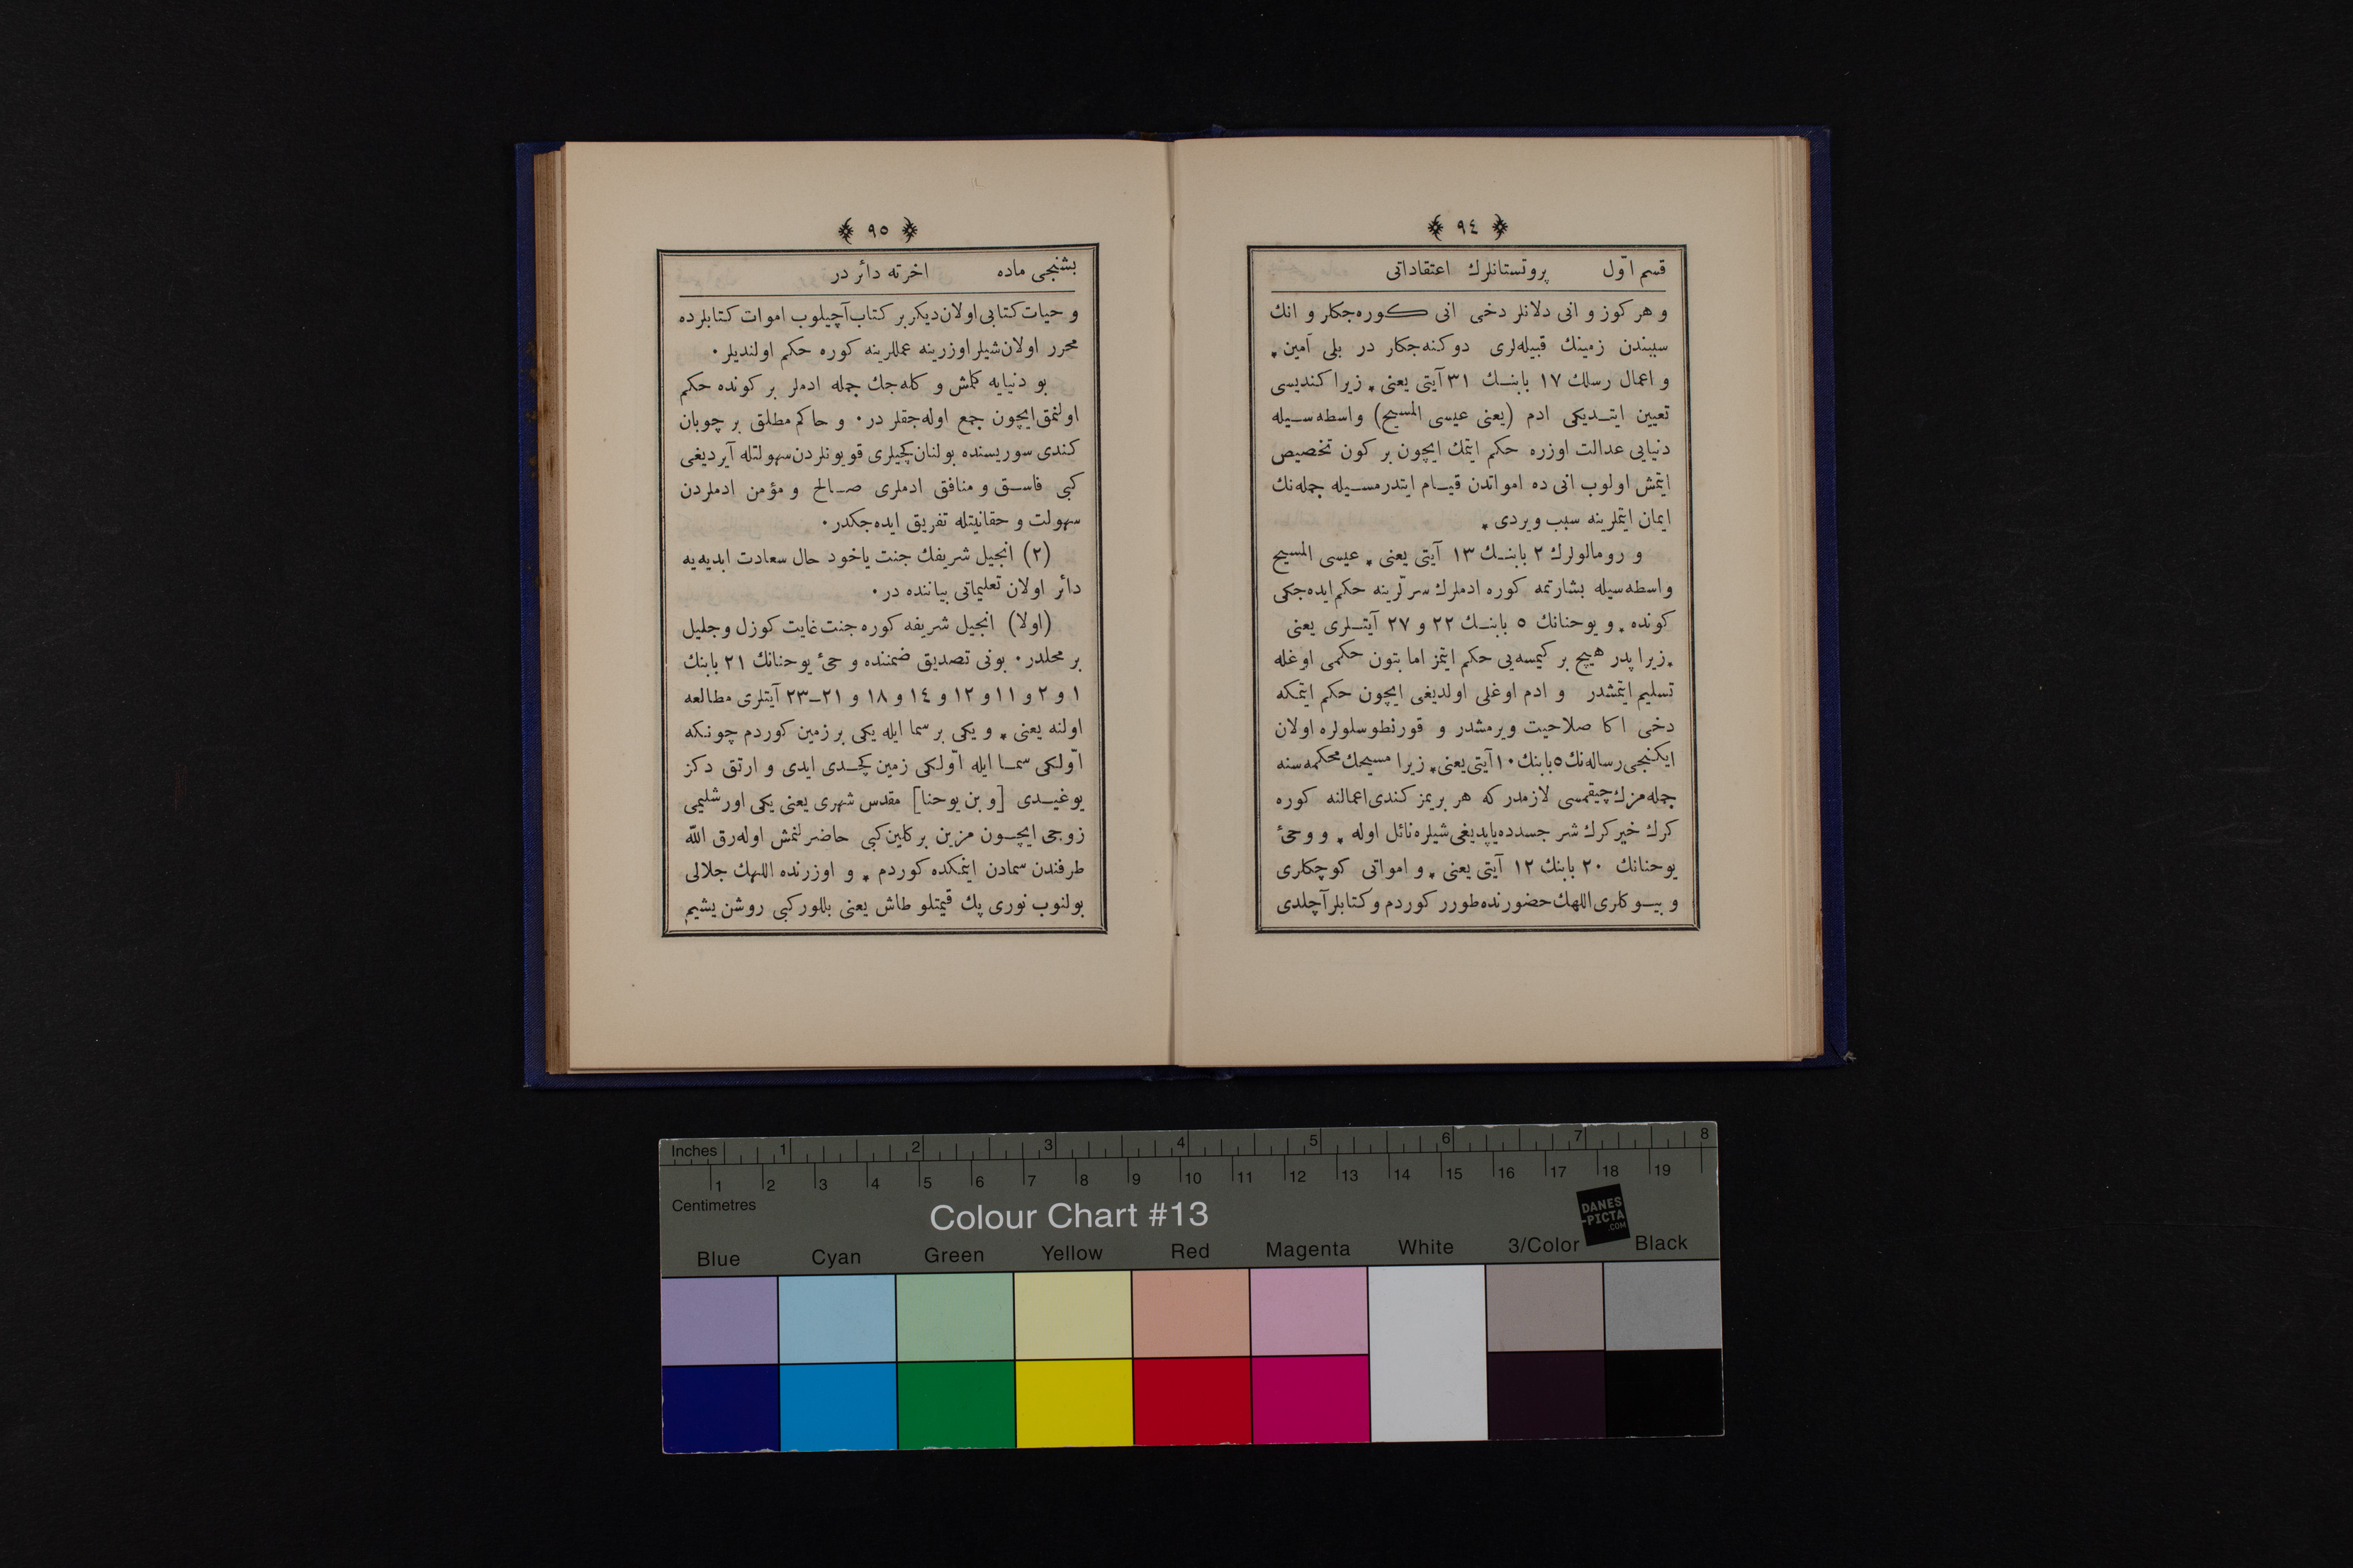 ﴿ ٩٤ ﴾
قسم اوّل پروتستانلرك اعتقاداتی
و هر كوز و انی دلانلر دخی انی كوره‌جكلر و انك
سببندن زمینك قبیله‌لری دوكنه‌جكلر در بلی آمین *
و اعمال رسلك ١٧ بابنك ٣١ آیتی یعنی * زیرا كندیسی
تعیین ایتدیكی ادم (یعنی عیسی المسیح) واسطه سیله
دنیایی عدالت اوزره حكم ایتمك ایچون بر كون تخصیص
ایتمش اولوب انی ده امواتدن قیام ایتدرمسیله جمله‌نك
ایمان ایتملرینه سبب ویردی *
و رومالولرك ٢ بابنك ١٣ آیتی یعنی * عیسی المسیح
واسطه‌سیله بشارتمه كوره ادملرك سرّلرینه حكم ایده‌جكی
كونده * و یوحنانك ٥ بابنك ٢٢ و ٢٧ آیتلری یعنی
* زیرا پدر هیچ بر كیمسه‌یی حكم ایتمز اما بتون حكمی اوغله
تسلیم ایتمشدر و ادم اوغلی اولدیغی ایچون حكم ایتمكه
دخی اكا صلاحیت ویرمشدر و قورنطوسلولره اولان
ایكنجی رساله‌نك ٥ بابنك ١٠ آیتی یعنی * زیرا مسیحك محكمه سنه
جمله‌مزك چیقمسی لازمدر كه هر بریمز كندی اعمالنه كوره
كرك خیر كرك شر جسدده یاپدیغی شیلره نائل اوله * و وحیٔ
یوحنانك ٢٠ بابنك ١٢ آیتی یعنی * و امواتی كوچكلری
و بیوكلری اللهك حضورنده طورر كوردم و كتابلر آچلدی
﴿ ٩٥ ﴾
بشنجی ماده اخرته دائر در
و حیات كتابی اولان دیكر بر كتاب آچیلوب اموات كتابلرده
محرر اولان شیلر اوزرینه عمللرینه كوره حكم اولندیلر ٠
بو دنیایه كلمش و كله‌جك جمله ادملر بر كونده حكم
اولنمق ایچون جمع اوله‌جقلر در ٠ و حاكم مطلق بر چوبان
كندی سوریسنده بولنان كچیلری قویونلردن سهولتله آیردیغی
كبی فاسق و منافق ادملری صالح و مؤمن ادملردن
سهولت و حقانیتله تفریق ایده‌جكدر ٠
(٢) انجیل شریفك جنت یاخود حال سعادت ابدیه‌یه
دائر اولان تعلیماتی بیاننده در ٠
(اولا) انجیل شریفه كوره جنت غایت كوزل و جلیل
بر محلدر ٠ بونی تصدیق ضمننده وحیٔ یوحنانك ٢١ بابنك
١ و ٢ و ١١ و ١٢ و ١٤ و ١٨ و ٢١ـ٢٣ آیتلری مطالعه
اولنه یعنی * و یكی بر سما ایله یكی بر زمین كوردم چونكه
اوّلكی سما ایله اوّلكی زمین كچدی ایدی و ارتق دكز
یوغیدی [و بن یوحنا] مقدس شهری یعنی یكی اورشلیمی
زوجی ایچون مزین بر كلین كبی حاضرلنمش اوله‌رق اللّه
طرفندن سمادن اینمكده كوردم * و اوزرنده اللهك جلالی
بولنوب نوری پك قیمتلو طاش یعنی بللور كبی روشن یشیم
Inches 1 2 3 4 5 6 7 8
1 2 3 4 5 6 7 8 9 10 11 12 13 14 15 16 17 18 19
Centimetres
Colour Chart #13
DANES
-PICTA
.COM
Blue Cyan Green Yellow Red Magenta White 3/Color Black